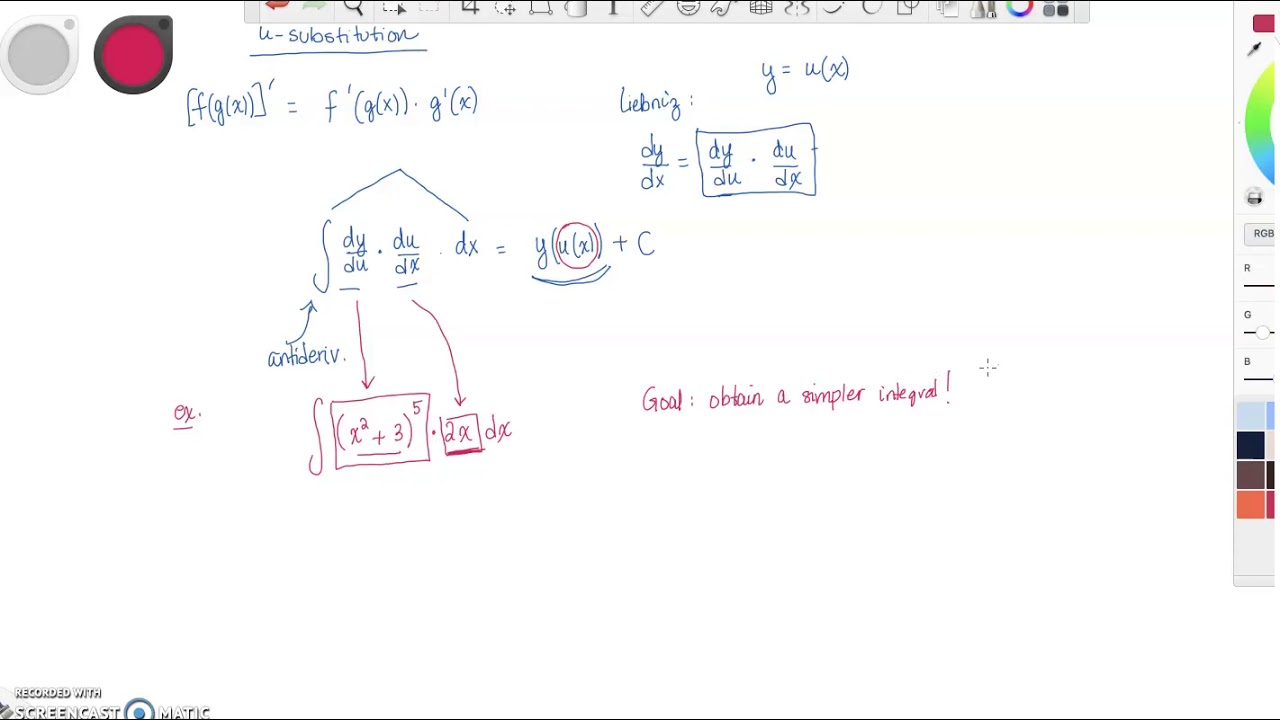 u-substitution
y = u(x)
[f(g(x))]' = f'(g(x)) · g'(x)
Liebniz:
dy/dx = dy/du · du/dx
∫ dy/du · du/dx · dx = y(u(x)) + C
antideriv.
Goal: obtain a simpler integral!
ex.
∫ (x² + 3)⁵ · 2x dx
RGB
R
G
B
RECORDED WITH
SCREENCAST MATIC